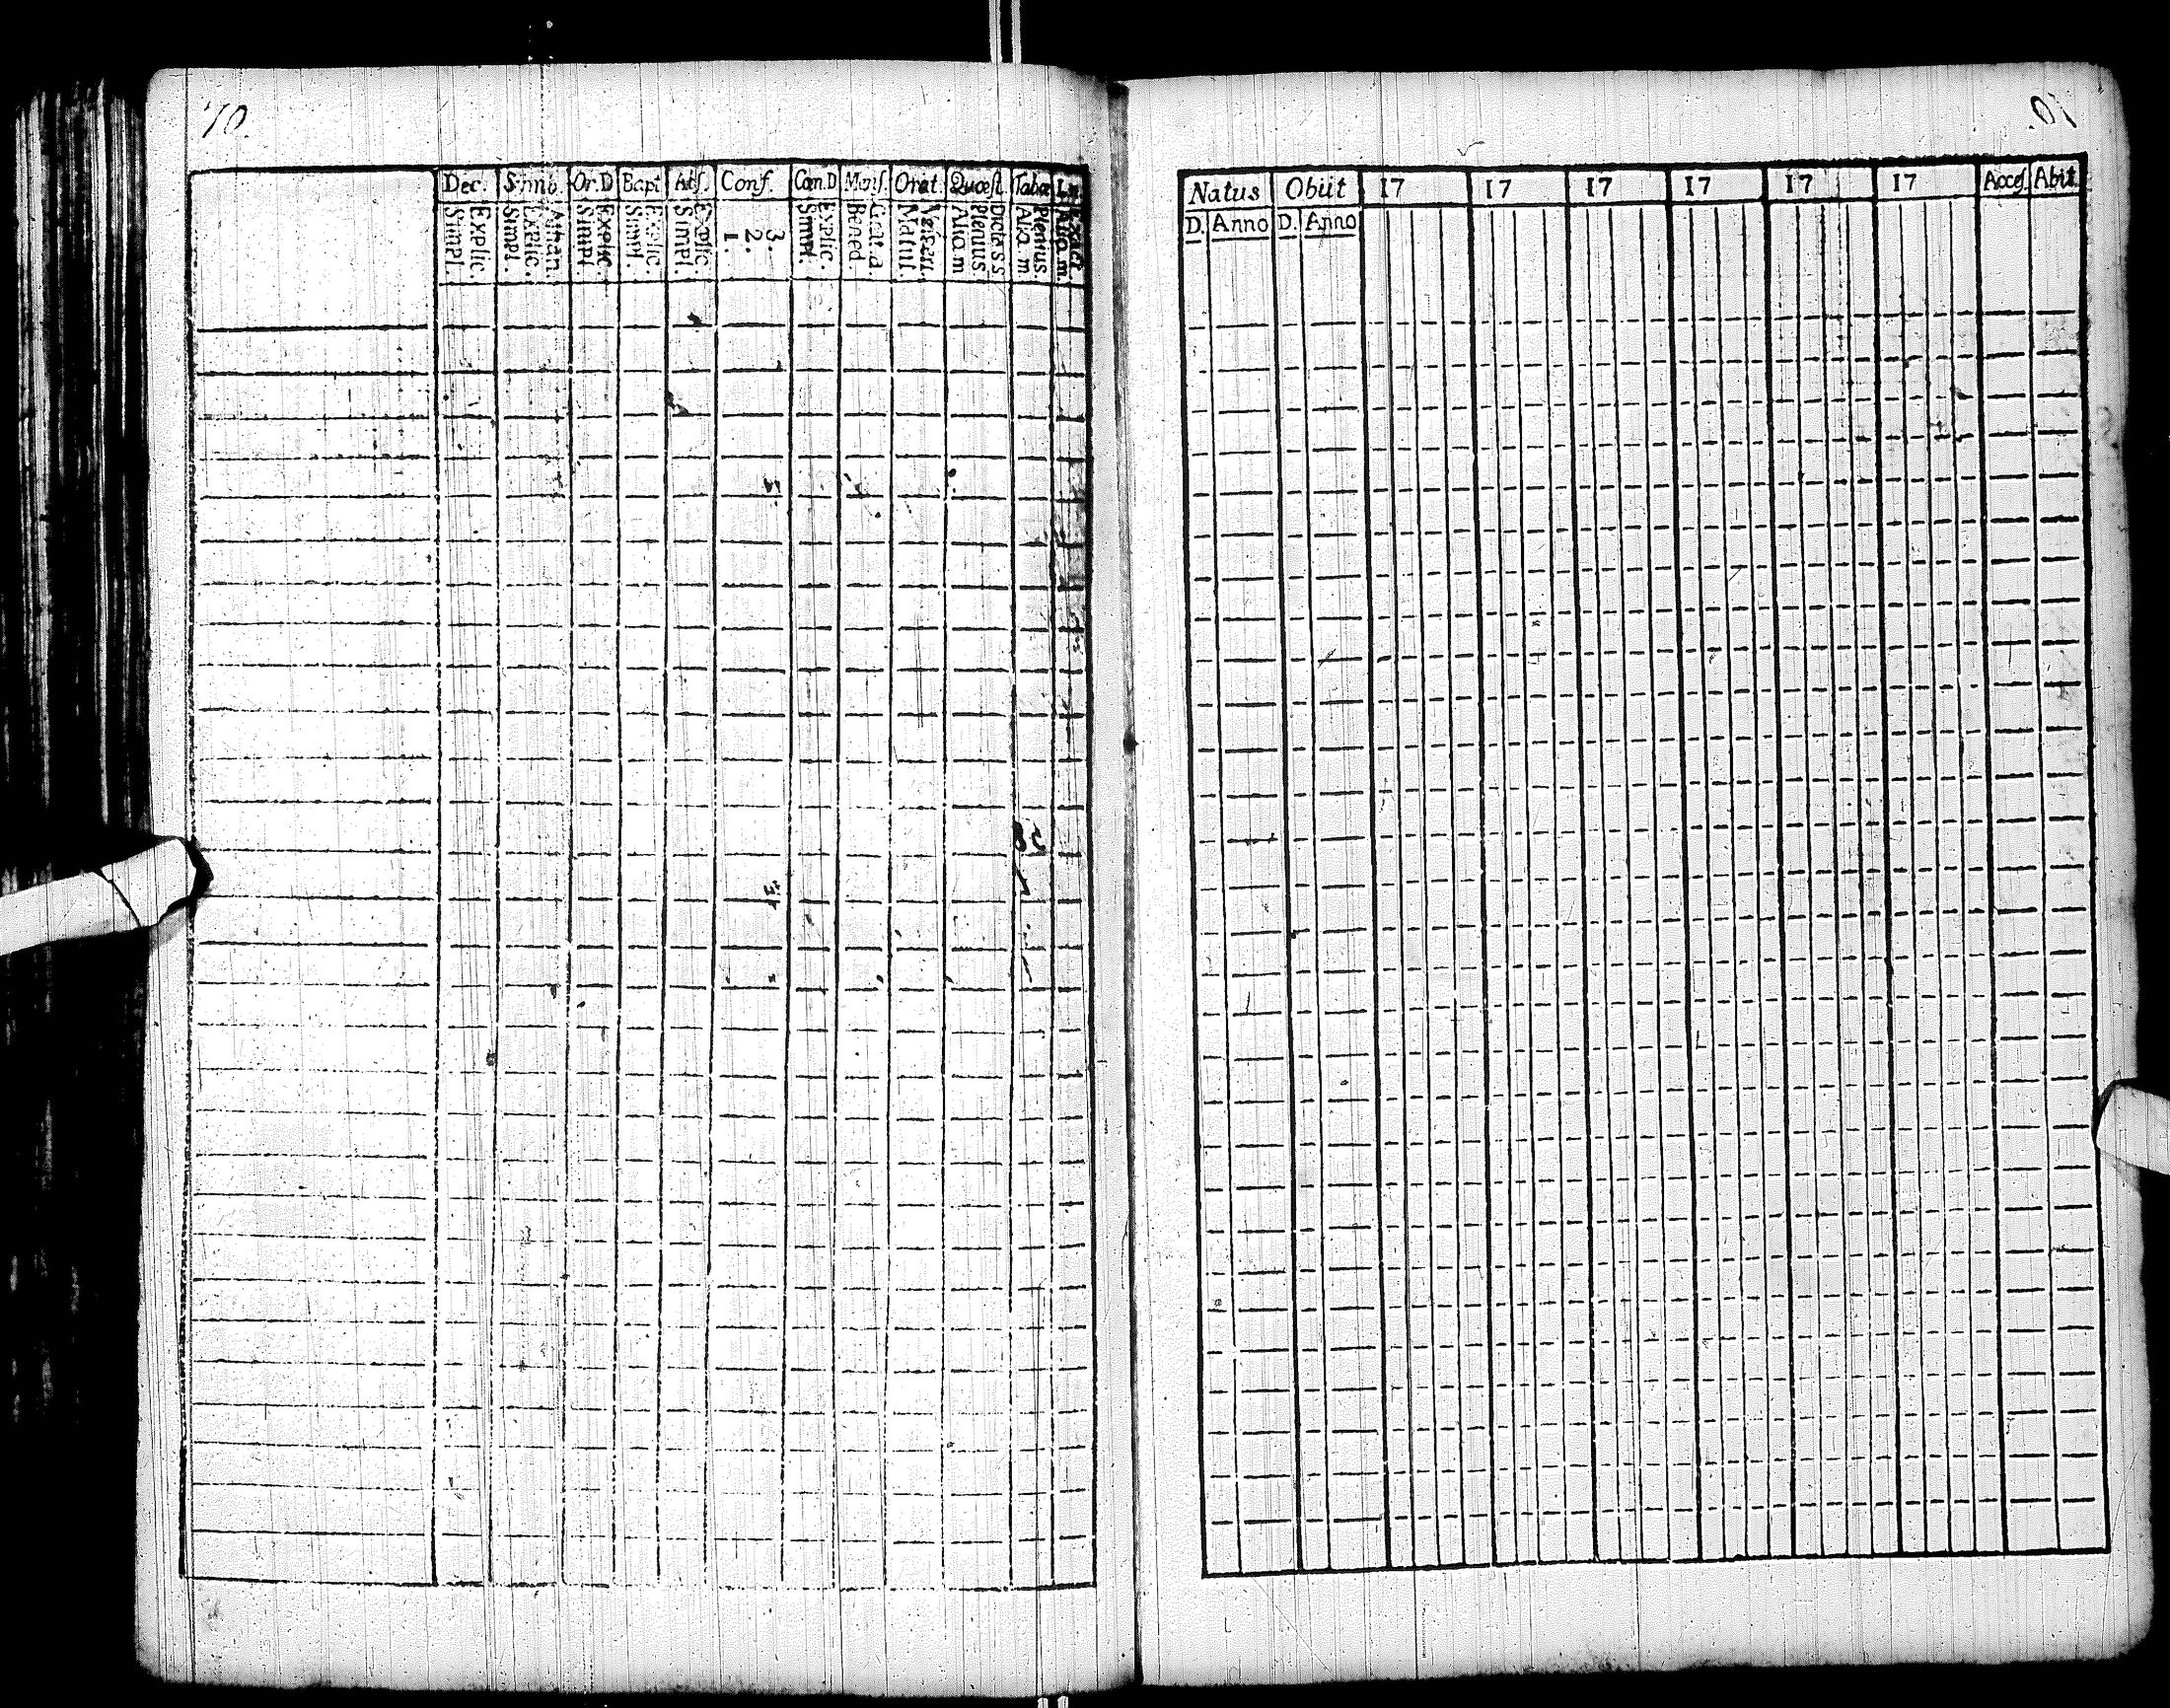 70.
Dec. Simb. Or.D Bapt Abs. Conf. Cœn.D Mens. Orat. Quæst. Tabæ
Explic. Simpl.
Athan. Explic. Simpl.
Explic. Simpl
Explic. Simpl.
Explic. Simpl.
3. 2. 1.
Explic. Simpl.
Grat.a Bened.
Vesper. Matut.
Dicta s s Plenius Alio m
Plenius. Alio m
Exact. Alio m.
70.
Natus Obiit 17 17 17 17 17 17 Acces. Abit
D. Anno D. Anno